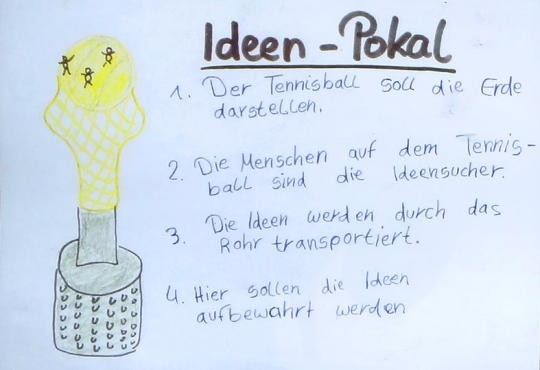 Ideen - Pokal
1. Der Tennisball soll die Erde
darstellen.
2. Die Menschen auf dem Tennis-
ball sind die Ideensucher.
3. Die Ideen werden durch das
Rohr transportiert.
4. Hier sollen die Ideen
aufbewahrt werden